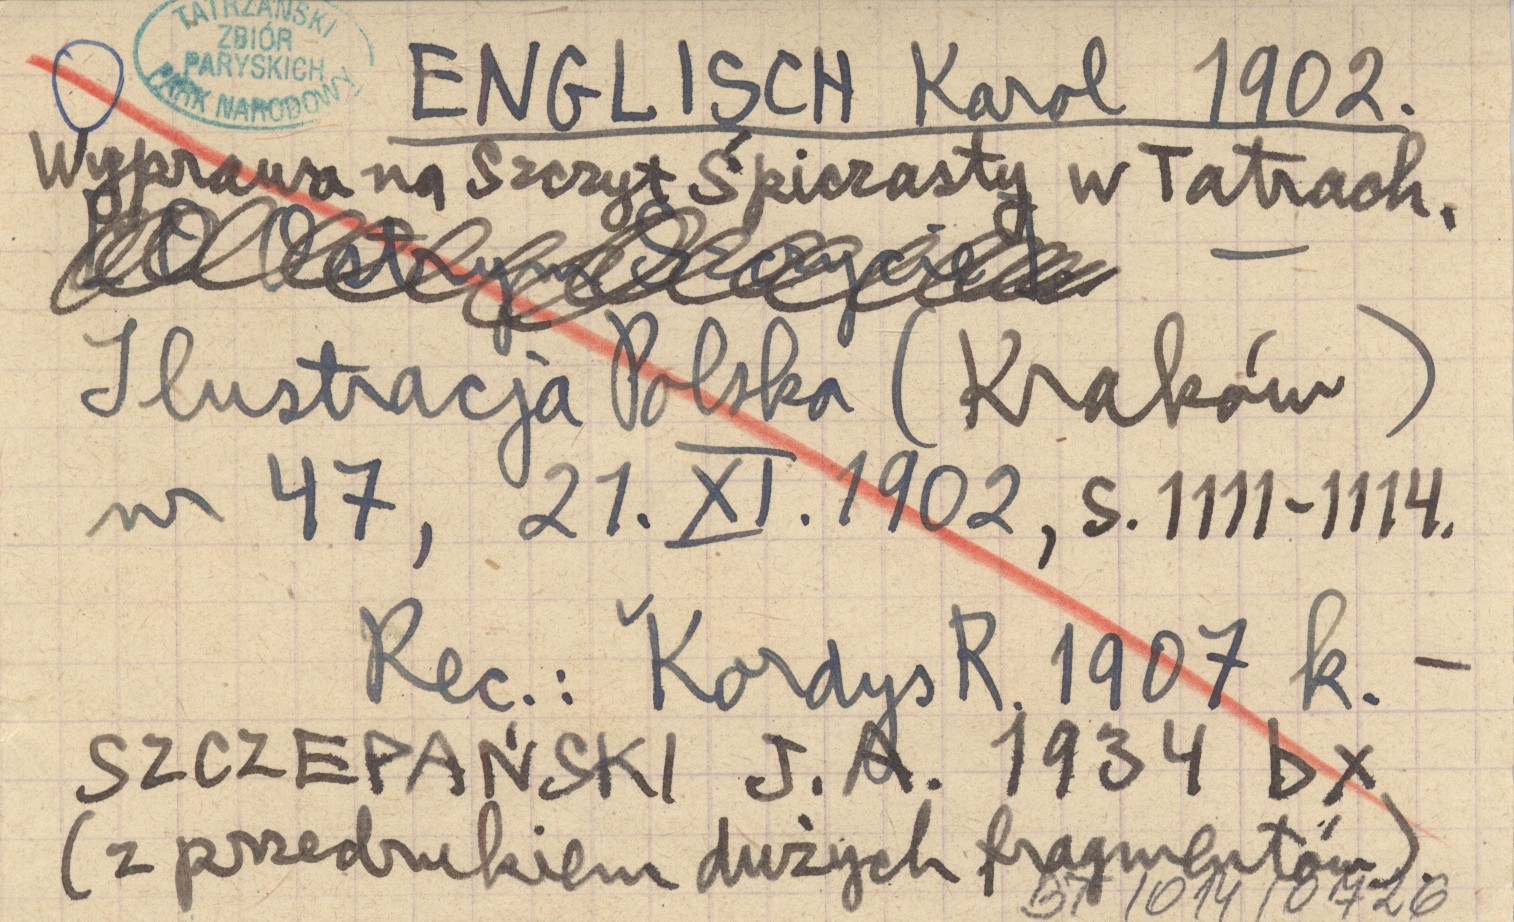 TATRZAŃSKI
ZBIÓR
PARYSKICH
PARK NARODOWY
ENGLISCH Karol 1902.
Wyprawa na Szczyt Śpiczasty w Tatrach.
[O Ostrym Szczycie]. —
Ilustracja Polska (Kraków)
nr 47, 21. XI. 1902, s. 1111-1114.
Rec.: Kordys R. 1907 k. —
SZCZEPAŃSKI J. A. 1934 bx
(z przedrukiem dużych fragmentów).